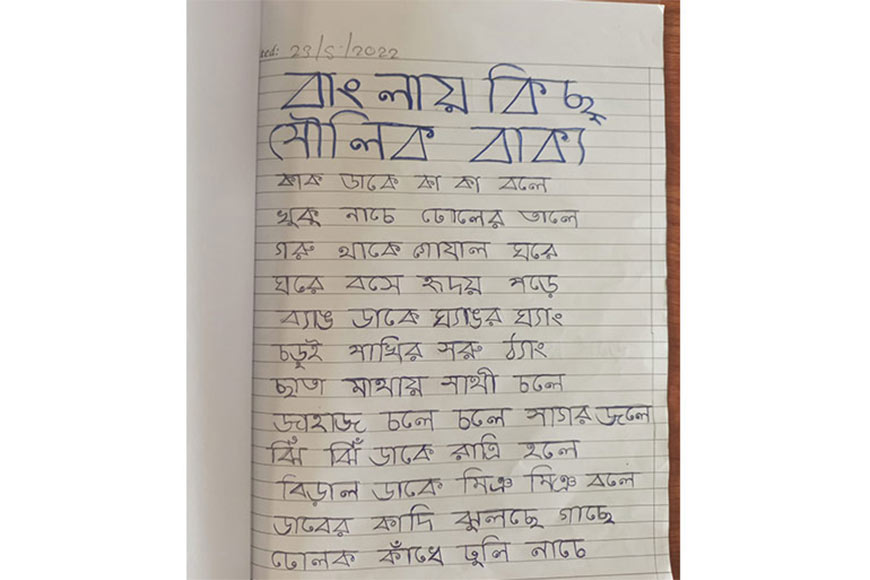 ted: 23/5/2022
বাংলায় কিছু
মৌলিক বাক্য
কাক ডাকে কা কা বলে
খুকু নাচে ঢোলের তালে
গরু থাকে গোয়াল ঘরে
ঘরে বসে হৃদয় পড়ে
ব্যাঙ ডাকে ঘ্যাঙর ঘ্যাং
চড়ুই পাখির সরু ঠ্যাং
ছাতা মাথায় সাথী চলে
জাহাজ চলে চলে সাগর জলে
ঝিঁ ঝিঁ ডাকে রাত্রি হলে
বিড়াল ডাকে মিঞ মিঞ বলে
ডাবের কাদি ঝুলছে গাছে
ঢোলক কাঁধে ঢুলি নাচে